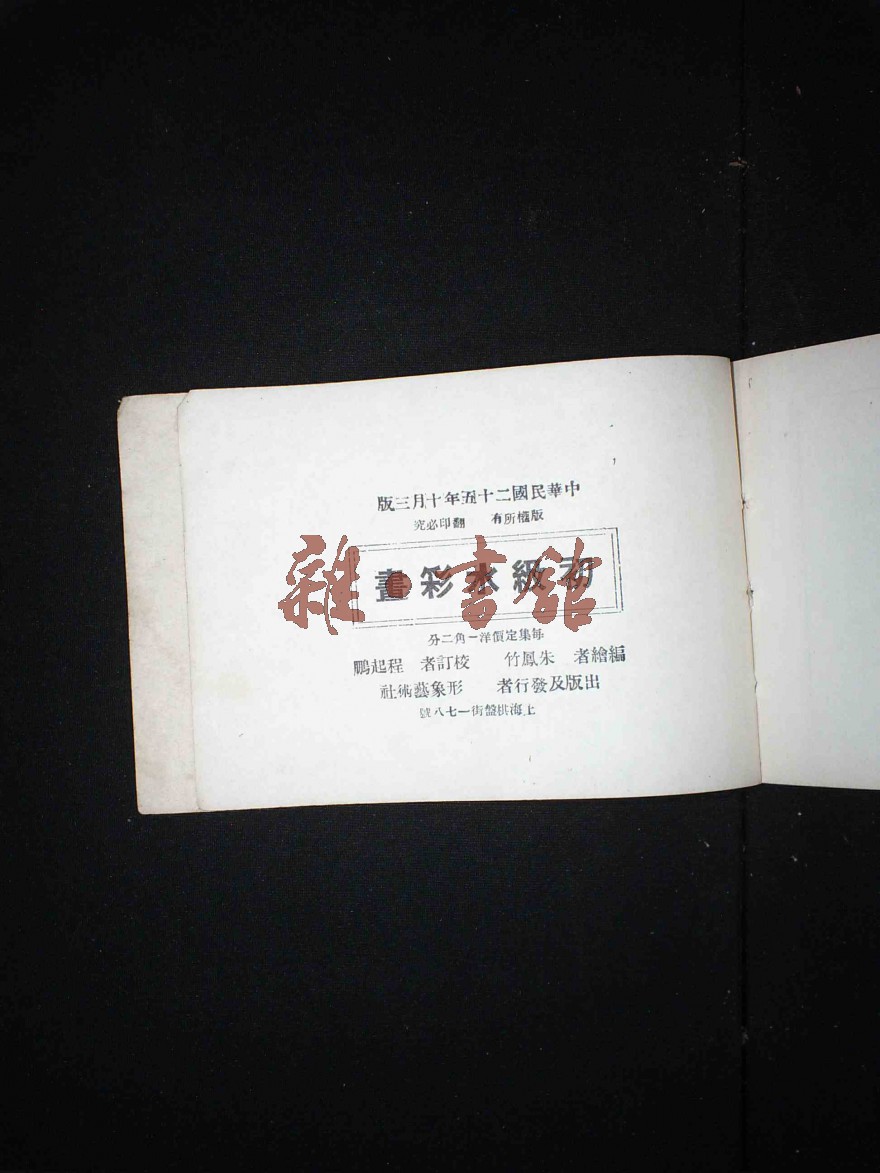 中華民國二十五年十月三版
版權所有 翻印必究
初級水彩畫
每集定價洋一角二分
編繪者 朱鳳竹 校訂者 程起鵬
出版及發行者 形象藝術社
上海棋盤街一七八號
雜·書館